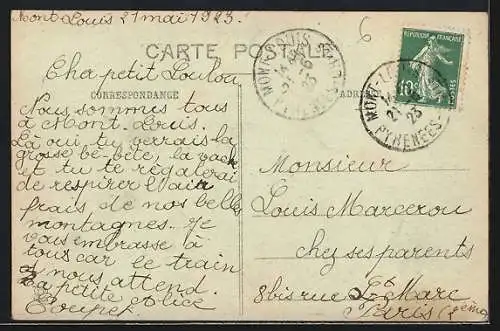 Mont Louis 21 mai 1923.
CARTE POSTALE
Cha petit Loulou
CORRESPONDANCE
Nous sommes tous
à Mont. Louis.
Là ou tu verrais la
grosse bé-bête, la vache
et tu te régalerai
de respirer l'air
frais de nos belles
montagnes. Je
vous embrasse à
tous car le train
nous attend.
La petite
MONT-LOUIS
23
PYRENEES
6
REPUBLIQUE FRANÇAISE
10
POSTES
MONT-LOUIS
23
PYRENEES
Monsieur
Louis Marcerou
chez ses parents
8 bis rue St Marc
Paris